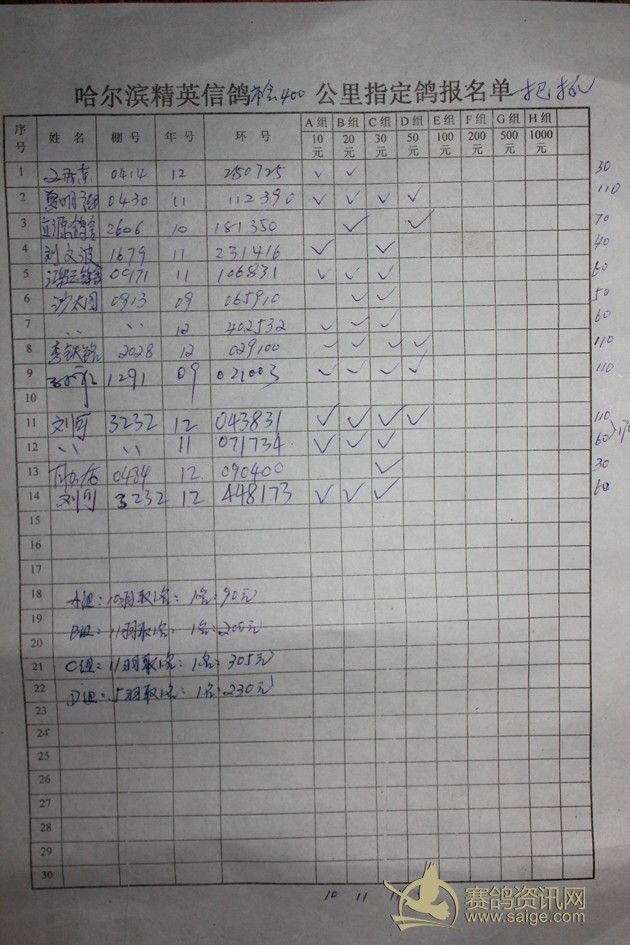 哈尔滨精英信鸽 400 公里指定鸽报名单
序号 姓 名 棚 号 年 号 环 号 A 组 B 组 C 组 D 组 E 组 F 组 G 组 H 组
10元 20元 30元 50元 100元 200元 500元 1000元
1 0414 12 250725 ✓ ✓ 30
2 0430 11 112390 ✓ ✓ ✓ ✓ 110
3 2606 10 181350 ✓ ✓ 70
4 刘文波 1679 11 231416 ✓ ✓ 40
5 0971 11 106831 ✓ ✓ ✓ 60
6 沙太国 0913 09 065910 ✓ ✓ 50
7 、、 、、 12 402532 ✓ ✓ ✓ 60
8 2028 12 029100 ✓ ✓ ✓ ✓ 110
9 1291 09 021003 ✓ ✓ ✓ ✓ 110
10
11 刘可 3232 12 043831 ✓ ✓ ✓ ✓ 110
12 、、 、、 11 071734 ✓ ✓ ✓ 60
13 0484 12 090400 ✓ 30
14 刘可 3232 12 448173 ✓ ✓ ✓ 60
15
16
17
18 A组:10羽取1名:1名:90元
19
20 B组:11羽取1名:1名:200元
21 C组:11羽取1名:1名:305元
22 D组:5羽取1名:1名:230元
23
24
25
26
27
28
29
30
10 11
赛鸽资讯网
www.saige.com